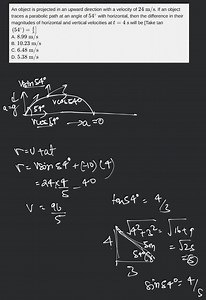 An object is projected in an upward direction with a velocity of 24 m/s. If an object
traces a parabolic path at an angle of 54° with horizontal, then the difference in their
magnitudes of horizontal and vertical velocities at t = 4 s will be [Take tan
(54°) = 4/3]
A. 8.99 m/s
B. 10.23 m/s
C. 6.48 m/s
D. 5.38 m/s
vsin54°
vcos54°
54°
vcos54° → a=0
v = u+at
v = usin54° + (-10)(4)
= 24×4/5 - 40
v = 96/5
tan54° = 4/3
√4²+3² = √16+9
= √25
= 5
4
5m
54°
3
sin54° = 4/5